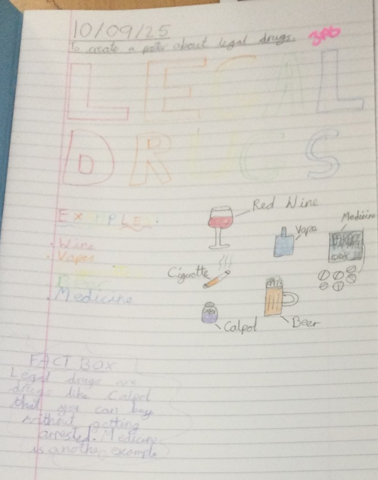 10/09/25
To create a poster about legal drugs. 3pb
LEGAL
DRUGS
Red Wine
Vape
Medicine
Cigarette
Calpol
Beer
. Wine
. Vapes
. Medicine
FACT BOX
Legal drugs are
drugs like Calpol
that you can buy
without getting
arrested. Medicine
is another example